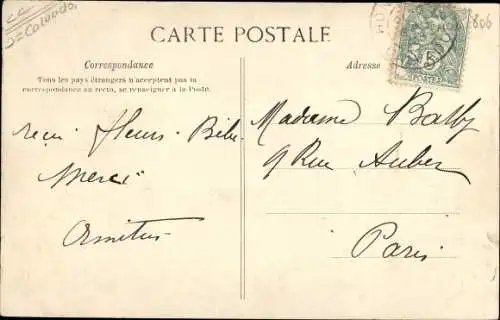 CARTE POSTALE
Correspondance
Tous les pays étrangers n'acceptent pas la
correspondance au recto, se renseigner à la Poste.
Adresse
reçu fleurs. Bébé
Merci
Madame Bally
9 Rue Auber
Paris